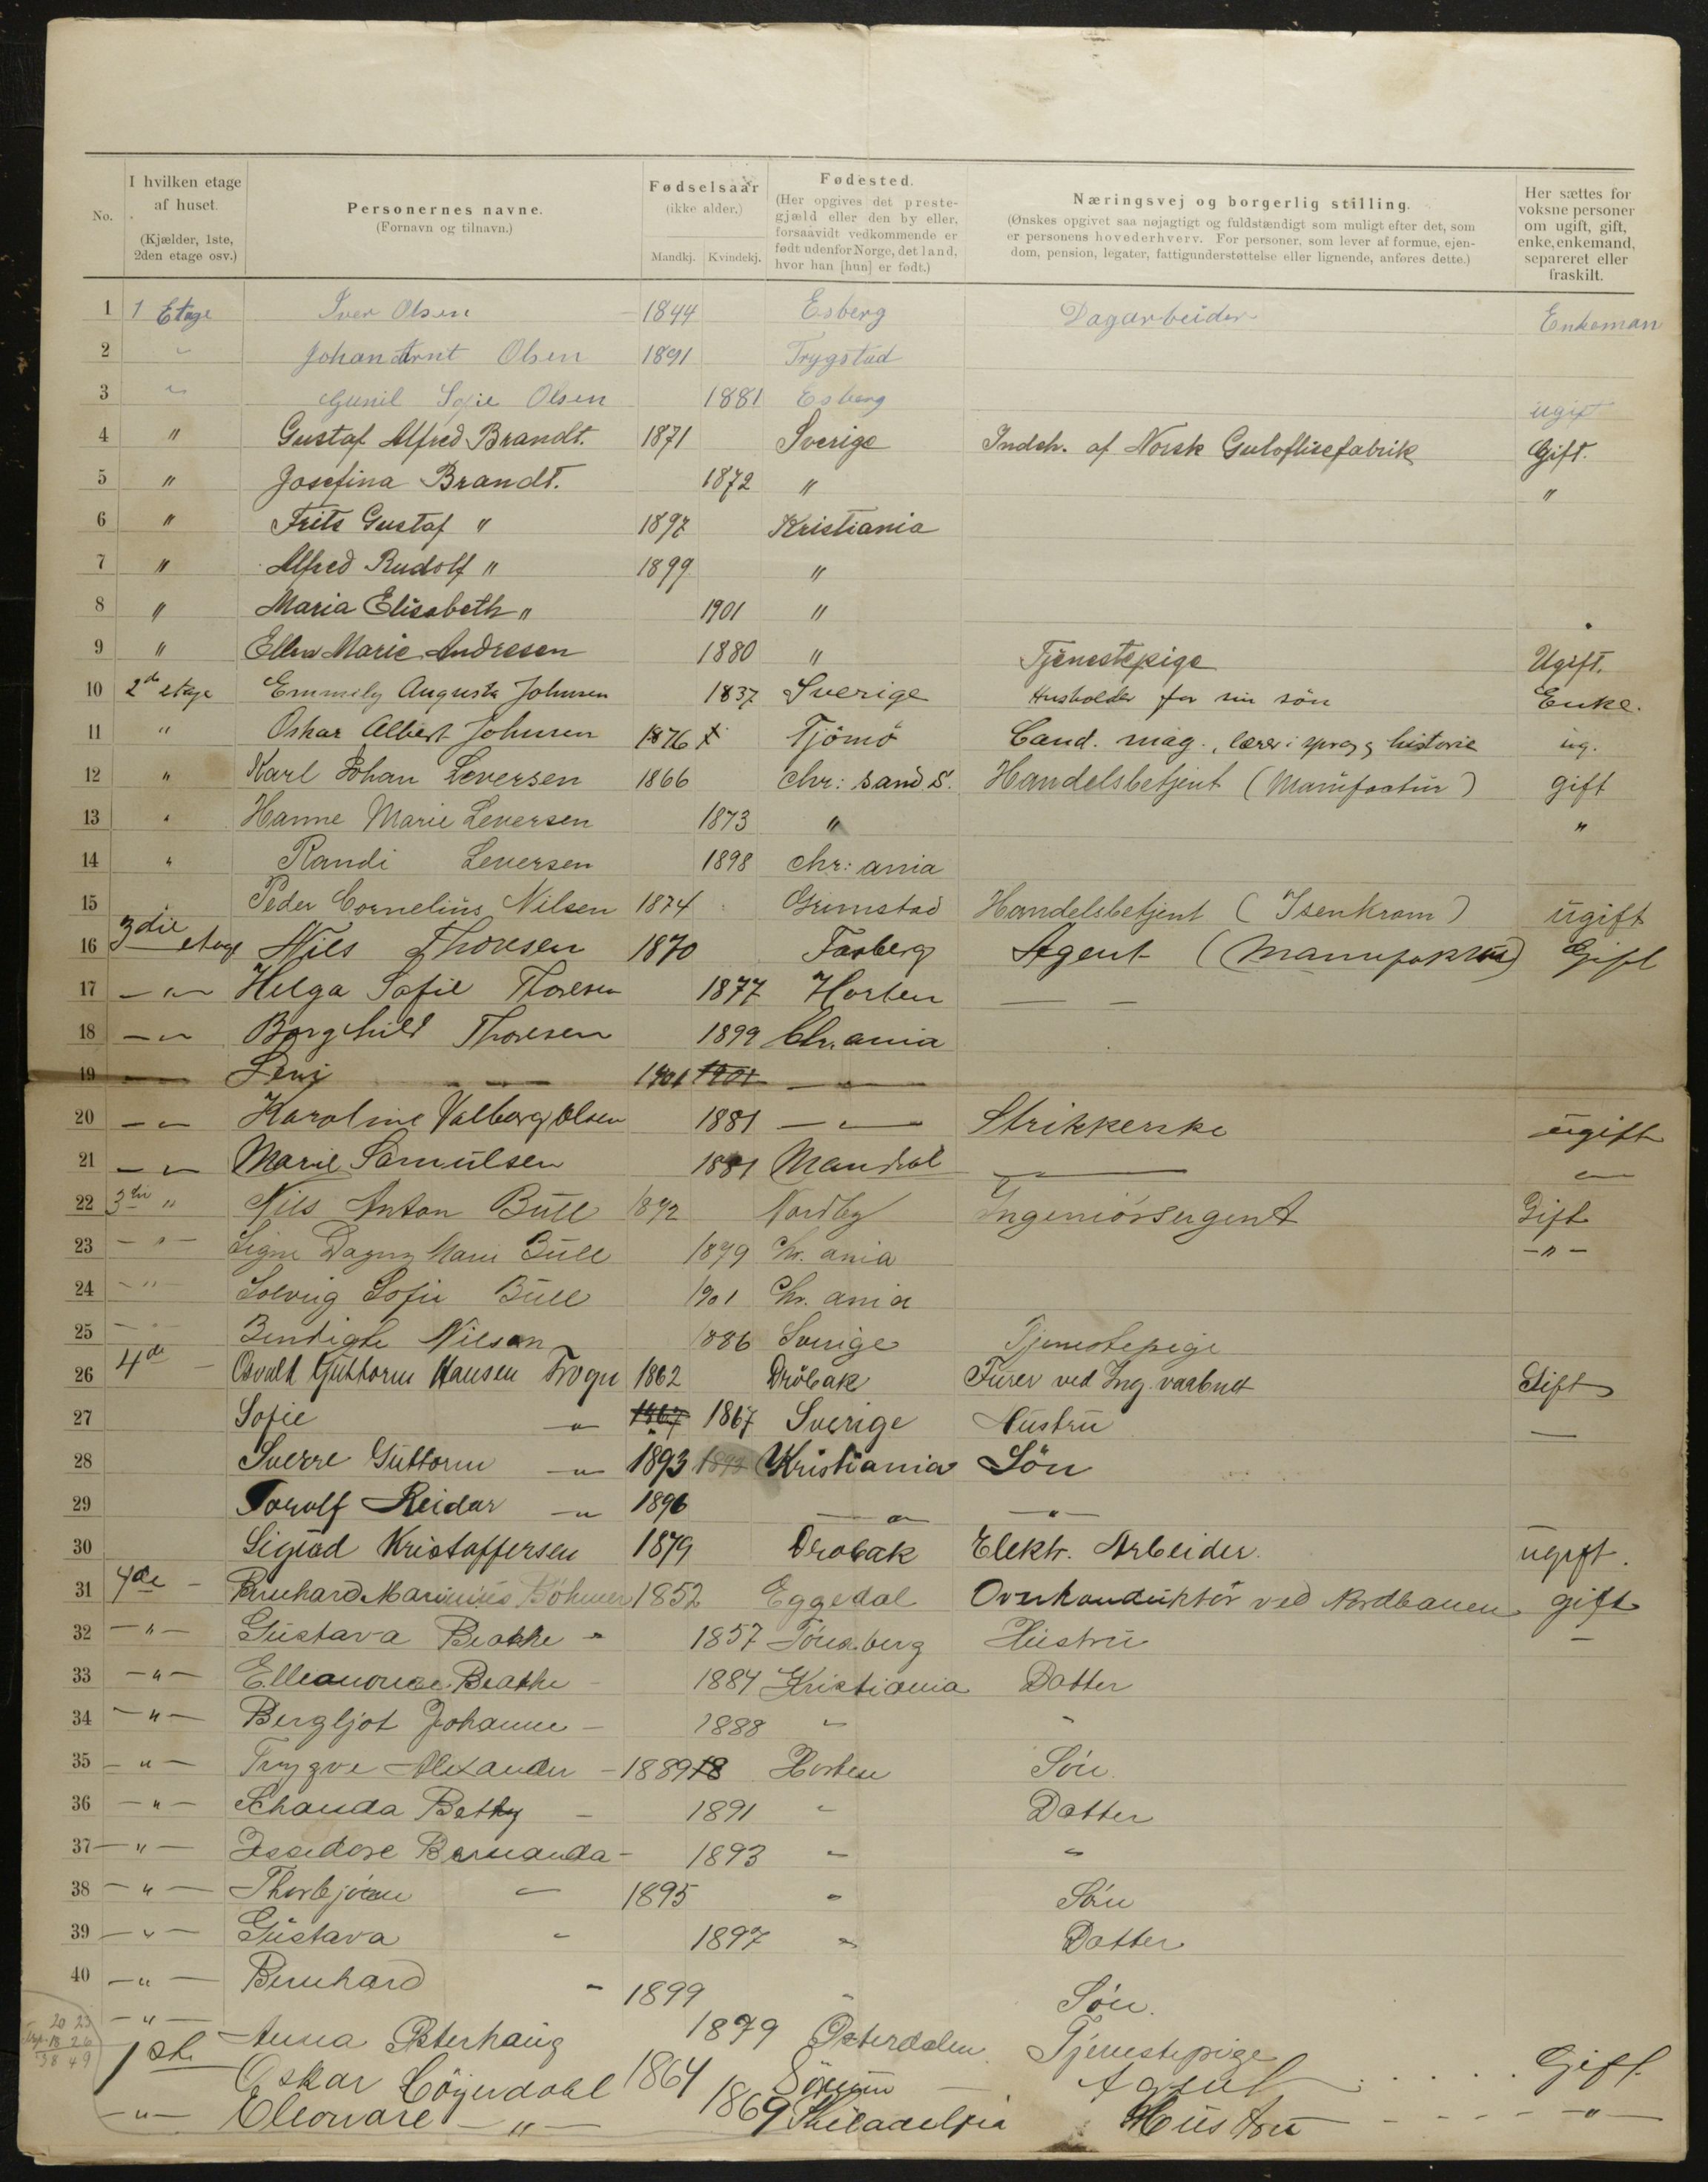 No.
I hvilken etage af huset. (Kjælder, 1ste, 2den etage osv.)
Personernes navne. (Fornavn og tilnavn.)
Fødselsaar (ikke alder.) Mandkj. Kvindekj.
Fødested. (Her opgives det prestegjæld eller den by eller, forsaavidt vedkommende er født udenfor Norge, det land, hvor han [hun] er født.)
Næringsvej og borgerlig stilling. (Ønskes opgivet saa nøjagtigt og fuldstændigt som muligt efter det, som er personens hovederhverv. For personer, som lever af formue, ejendom, pension, legater, fattigunderstøttelse eller lignende, anføres dette.)
Her sættes for voksne personer om ugift, gift, enke, enkemand, separeret eller fraskilt.
1 1 Etage Iver Olsen 1844 Esberg Dagarbeider Enkeman
2 " Johan Arnt Olsen 1891 Trygstad
3 " Gunil Sofie Olsen 1881 Esberg ugift
4 " Gustaf Alfred Brandt. 1871 Sverige Indeh. af Norsk Gulvflisefabrik Gift.
5 " Josefina Brandt. 1872 " "
6 " Frits Gustaf " 1897 Kristiania
7 " Alfred Rudolf " 1899 "
8 " Maria Elisabeth " 1901 "
9 " Ellen Marie Andresen 1880 " Tjenestepige Ugift.
10 2de etage Emmily Augusta Johnsen 1837 Sverige Husholder for sin søn Enke.
11 " Oskar Albert Johnsen 1876 Tjömö Cand. mag., lærer i sprog g historie ug.
12 " Karl Johan Leversen 1866 Chr: sand S. Handelsbetjent (Manufactur) gift
13 " Hanne Marie Leversen 1873 " "
14 " Randi Leversen 1898 Chr: ania
15 " Peder Cornelius Nilsen 1874 Grimstad Handelsbetjent (Isenkram) ugift
16 3die etage Nils Thoresen 1870 Agent (Manufaktur) Gift
17 — " — Helga Sofie Thoresen 1877 Horten — —
18 — " — Borghild Thoresen 1899 Chr. ania
19 — Leni — 1901 1901 — " —
20 — " — Karoline Valborg Olsen 1881 — " — Strikkerske ugift
21 — " — Marie Samulsen 1881 Mandal — " — "
22 3die " Nils Anton Bull 1872 Nordby Ingeniörsergent Gift
23 — " — Signe Dagny Marie Bull 1879 Chr. ania — " —
24 — " — Solveig Sofie Bull 1901 Chr. ania
25 — " — Bendigte Nilsen 1886 Sverige Tjenestepige
26 4de — Osvald Guttorm Hansen Frogn 1862 Dröbak Furer ved Ing. vaabnet Gift
27 Sofie — " 1867 1867 Sverige Hustru —
28 Sverre Guttorm — " 1893 1893 Kristiania Sön
29 Torolf Reidar — " 1896 — " — — " —
30 Sigurd Kristoffersen 1879 Drobak Elektr. Arbeider. ugift.
31 4de — Bernhard Marinius Böhmer 1852 Eggedal Overkonduktör ved Nordbanen gift
32 — " — Gustava Beathe " 1857 Tönsberg Hustru —
33 — " — Elleanorae Beathe — 1884 Kristiania Datter
34 — " — Bergljot Johanne — 1888 " "
35 — " — Trygve Alexander — 1889 18 Horten Sön.
36 — " — Schanda Betty — 1891 " Datter
37 — " — Issedore Bernanda — 1893 " "
38 — " — Thorbjörn — 1895 " Sön
39 — " — Gustava — 1897 " Datter
40 — " — Bernhard — 1899 " Sön.
— " — Anna Østerhaug 1879 Österdalen Tjenestepige
1 st. Oskar Löyerdahl 1864 Agent . . . . . Gift.
— " — Eleonare — " — 1869 Philadelfia Hustru - - - - - — " —
20 23
18 26
38 49